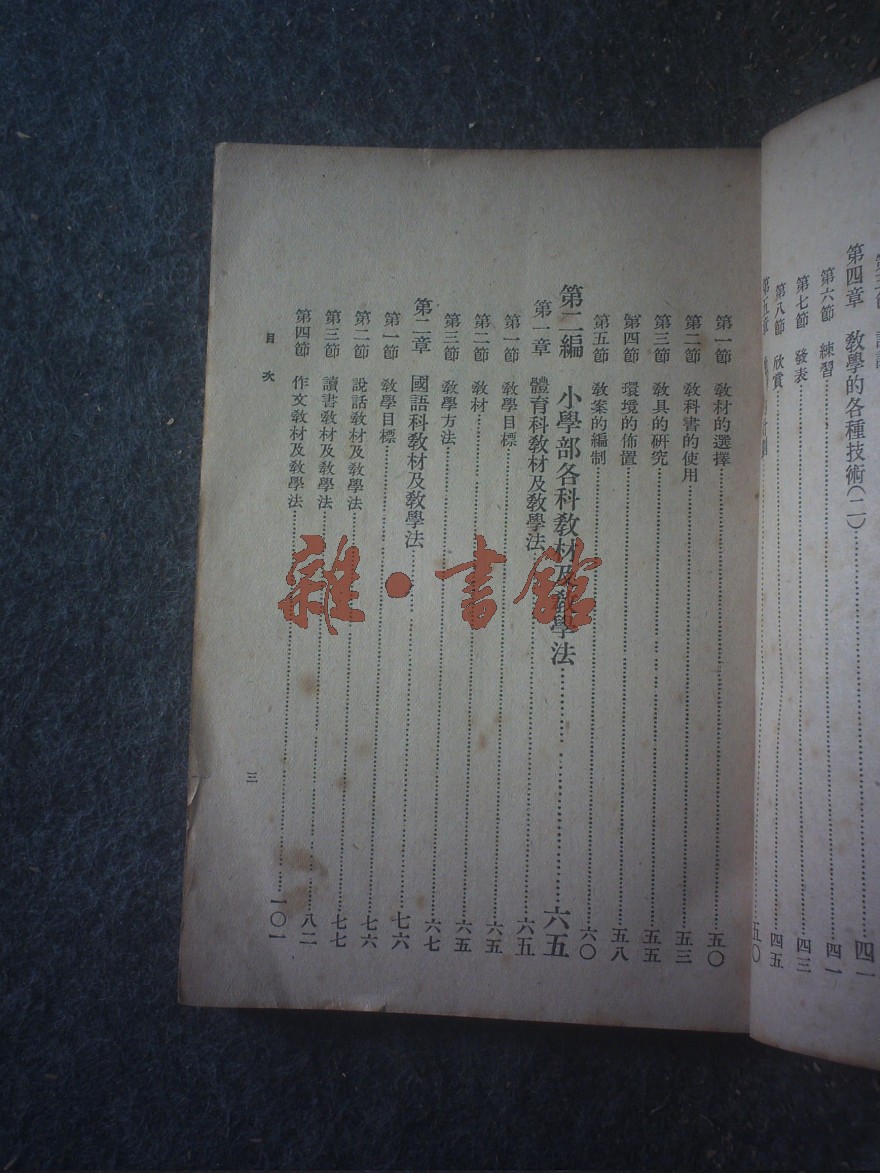 第四章　教學的各種技術(二)……四一
第六節　練習……四一
第七節　發表……四三
第八節　欣賞……四五
第一節　教材的選擇……五〇
第二節　教科書的使用……五三
第三節　教具的研究……五五
第四節　環境的佈置……五八
第五節　教案的編制……六〇
第二編　小學部各科教材及教學法……六五
第一章　體育科教材及教學法……六五
第一節　教學目標……六五
第二節　教材……六五
第三節　教學方法……六七
第二章　國語科教材及教學法……七六
第一節　教學目標……七六
第二節　說話教材及教學法……七七
第三節　讀書教材及教學法……八二
第四節　作文教材及教學法……一〇一
目次
三
雜·書館